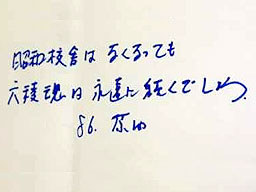 昭和校舎は なくなっても
六稜魂は 永遠に 続くでしょう.
86.